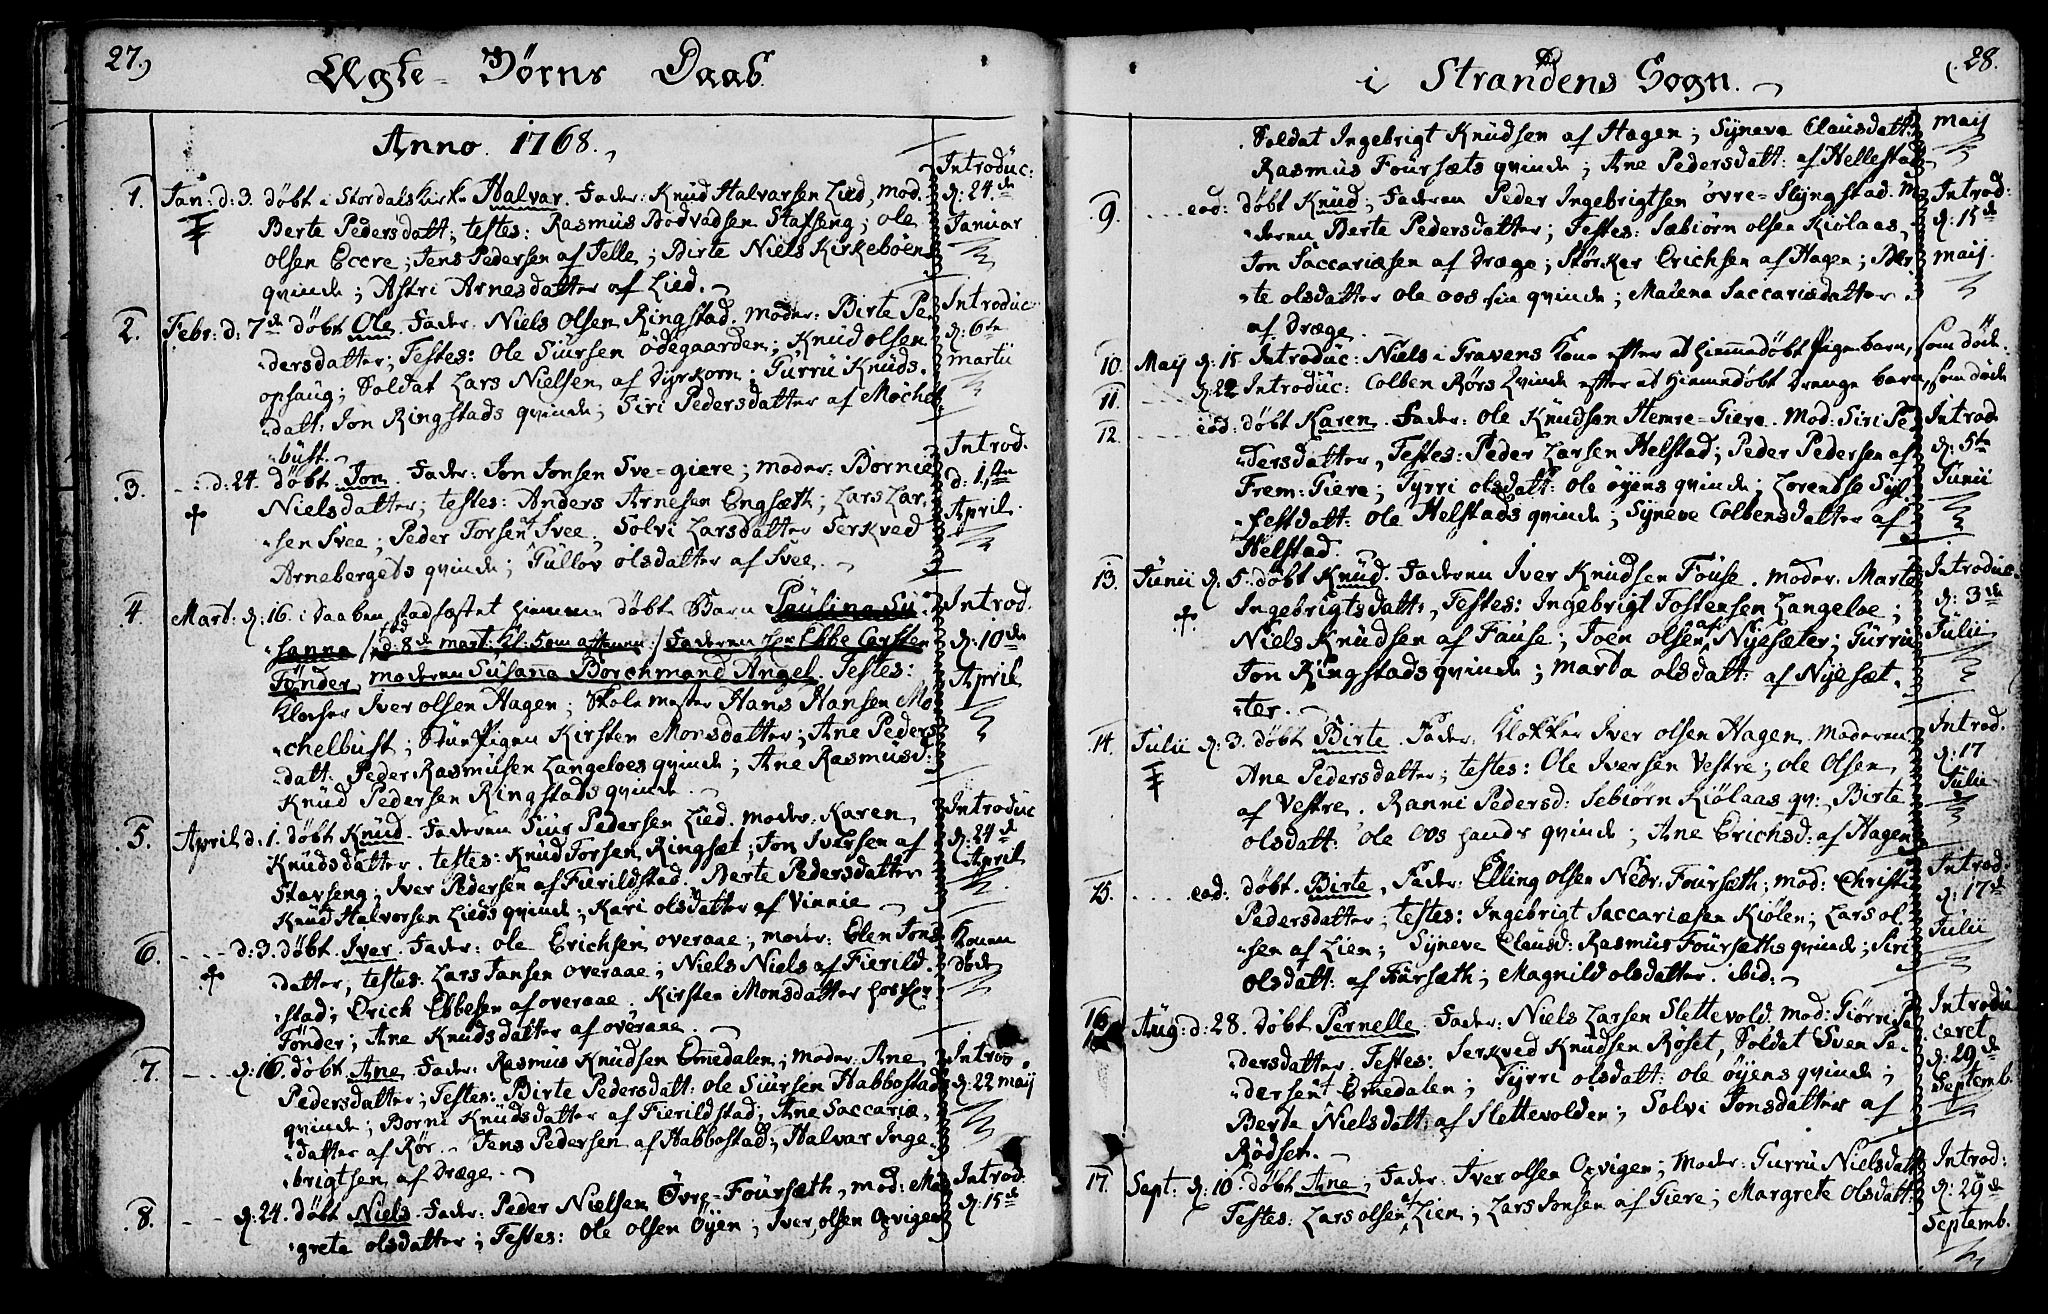 27.)
Ægte-Börns Daab
Anno. 1768.
1. Jan: d: 3. döbt i Stordals Kirke Halvar. Fader: Knud Halvarsen Lied, mod. Introduc: d: 24.de Januar
Berte Pedersdatt:; testes: Rasmus Bodvadsen Stafseng; ole
olsen Eccre; Jens Pedersen af Jelle; Birte Niels Kirkeböens
qvinde; Astri Arnesdatter af Lied.
2. Febr: d: 7de döbt Ole. Fader: Niels Olsen Ringstad. moder: Birte Pe- Introduc d: 6te martii
dersdatter; Testes: Ole Siursen ödegaarden; Knud olsen
opsaug; Soldat Lars Nielsen af Dyrkorn; Gurru Knuds.
datt: Jon Ringstads qvinde; Siri Pedersdatter af Mochel
büst.
3. d: 24. döbt Jon. Fader: Jon Jonsen Sve-giere; moder: Bornie Introd. d: 1.ste April.
Nielsdatter; testes: Anders Arnesen Engsæth; Lars Lar,
sen Svee; Peder Torsen Svee; Solvi Larsdatter Serkved
Arnebergets qvinde; Gullov olsdatter af Svee.
4 Mart: d: 16. i Daaben stadfæstet hiemme döbte Barn Paulina Su Introd. d: 10de April
sanna /: d: 8de mart: Kl: 5 om aftenen :/ Faderen Hr: Ebbe Carsten
Tönder, moderen Susanna Borchmand Angel. Testes:
Klocker Iver olsen Hagen; Skole mester Hans Hansen Mo
chelbust; Stue Pigen Kirsten Monsdatter; Ane Peders
datt: Peder Rasmusen Langeloes qvinde; Ane Rasmusd:
Knud Pedersen Ringstads qvinde.
5. April d: 1. döbt Knud. Faderen Siur Pedersen Lied. moder: Karen Introduc d: 24de April
Knudsdatter. testes: Knud Torsen Ringsæt; Jon Iversen af
Stavseng; Iver Pedersen af Fierildstad. Berte Pedersdatter
Knud Halvorsen Lieds qvinde; Kari olsdatter af Vinnie
6. d: 3. döbt Iver. Fader: ole Erichsen overaae; moder: Elen Jons Konen döde
datter; testes: Lars Jansen overaae; Niels Niels af Fierild.
stad; Erich Ebbesen af overaae. Kirsten Monsdatter hos Hr
Tönder; Ane Knudsdatter af overaae.
7. d: 16. döbt Ane. Fader: Rasmus Knudsen Emedalen; moder: Ane Introd d: 22 maij
Pedersdatter; Testes: Birte Pedersdatt: ole Siursen Habbostad
qvinde; Borni Knudsdatter af Fierildstad; Ane Saccariæ,
datter af Rör. Jens Pedersen af Habbostad; Halvar Inge
brigtsen af Dræge.
8. d: 24. döbt Niels. Fader: Peder Nielsen Övre-Foursæth, mod: Mar Introd. d: 15de
grete olsdatter; Testes: Ole olsen Öyen; Iver olsen Opvigen
28.
i Strandens Sogn.
Soldat Ingebrigt Knudsen af Hagen; Syneve Clausdatt: maij
Rasmus Foursæts qvinde; Ane Pedersdatt: af Hellestad
9. eod: döbt Knud; Faderen Peder Ingebrigtsen övre-Slyngstad. Mo Introd: d: 15de maij.
deren Berte Pedersdatter; Testes: Sæbiörn olsen Kiölaas,
Jon Saccariæsen af Dræge; Störker Erichsen af Hagen; Ber
te olsdatter ole oos sin qvinde; Malena Saccariædatter
af Dræge.
10. Maij d: 15. Introduc: Niels i Gravens Kone efter at hiemedöbt Pigebarn, som döde.
11. d: 22 Introduc: Colben Rörs Qvinde efter at hiemedöbt Drenge barn, som döde
12. eod: döbt Karen. Fader: Ole Knudsen Hemre-Giere. Mod: Siri Pe Introd d: 5te Junii
dersdatter, Testes: Peder Larsen Helstad; Peder Pedersen af
Frem: Giere; Gyrri olsdatt: ole öyens qvinde; Lorentse Syl
festdatt: Ole Helstads qvinde; Syneve Colbensdatter af
Helstad.
13. Junii d: 5. döbt Knud. Faderen Iver Knudsen Fouse. moder: Marte Introduc d: 3de Julii
Ingebrigtsdatt:, Testes: Ingebrigt Tostensen Langeloe;
Niels Knudsen af Fause; Joen olsen af Nyesæter; Gurru
Jon Ringstads qvinde; Marta olsdatt: af Nyesæt
ter.
14. Julii d: 3. döbt Birte. Fader: Klokker Iver olsen Hagen. Moderen Introd. d: 17 Julii
Ane Pedersdatter; testes: Ole Iversen Vestre; ole Olsen
af Vestre. Ranni Pedersd: Sebiörn Kiölaas qv:, Birte
olsdatt: ole Oos hands qvinde; Ane Erichsd: af Hagen
15. eod: döbt Birte, Fader: Elling olsen Nedr: Foursæth; mod: Christi Introd: d: 17de Julii
Pedersdatter; testes: Ingebrigt Saccariæsen Kiölen; Lars ol
sen af Lien; Syneve Clausd: Rasmus Foursæths qvinde; Siri
olsdatt: af Fursæth; Magnild olsdatter. ibid:
16. Aug: d: 28. döbt Pernelle. Fader: Niels Larsen Slettevold. mod: Giörri Pe Introdu ceret d: 29de Septemb.
dersdatter; Testes: Serkved Knudsen Röset, Soldat Sven Pe
dersen Emedalen; Gyrri olsdatt: ole öyens qvinde;
Berte Nielsdatt: af Slettevolden; Solvi Jonsdatter af
Rödset.
17. Sept: d: 10. döbt Ane; Fader: Iver olsen Opvigen; Moder: Gurru Nielsdatt Introd: d: 29de Septemb.
Testes: Lars olsen af Lien; Lars Jonsen af Giere; Margrete Olsdatt: